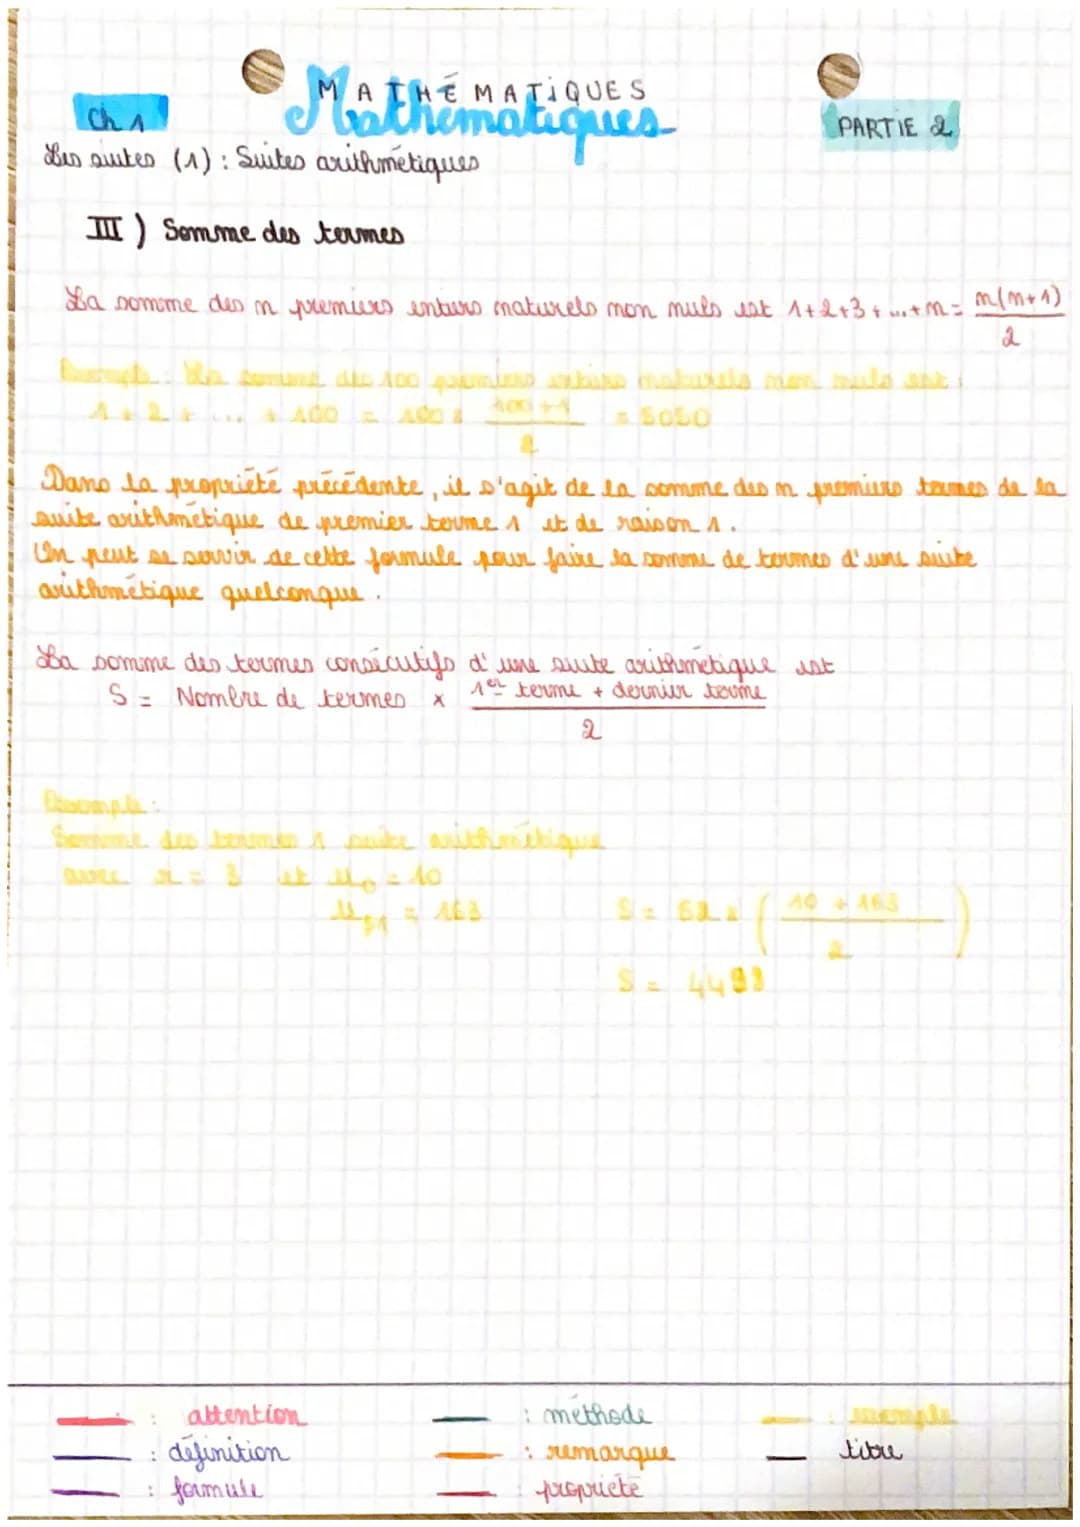 MATHÉMATIQUES
Mathématiques
Ch 1
PARTIE 2
Les suites (1) : Suites arithmétiques
III ) Somme des termes
La somme des n premiers entiers naturels non nuls est 1+2+3+...+n = n(n+1)
2
Exemple : La somme des 100 premiers entiers naturels non nuls est :
1 + 2 + ... + 100 = 100 x 100+1 = 5050
2
Dans la propriété précédente, il s'agit de la somme des n premiers termes de la
suite arithmétique de premier terme 1 et de raison 1.
On peut se servir de cette formule pour faire la somme de termes d'une suite
arithmétique quelconque.
La somme des termes consécutifs d'une suite arithmétique est
S = Nombre de termes x 1er terme + dernier terme
2
Exemple :
Somme des termes suite arithmétique
avec r = 3 et u0 = 10
u51 = 163
S = 52 x ( 10 + 163 )
2
S = 4498
: attention
: définition
: formule
: méthode
: remarque
: propriété
: exemple
titre